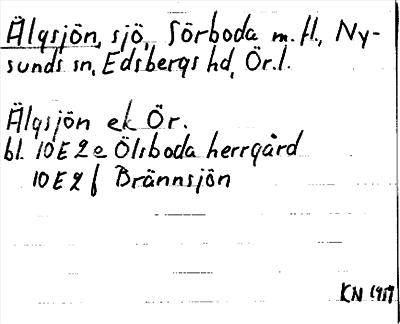 Älgsjön, sjö, Sörboda m.fl., Ny-
sunds sn, Edsbergs hd, Ör.l.
Älgsjön ek Ör.
bl. 10E2e Ölsboda herrgård
10E2f Brännsjön
KN